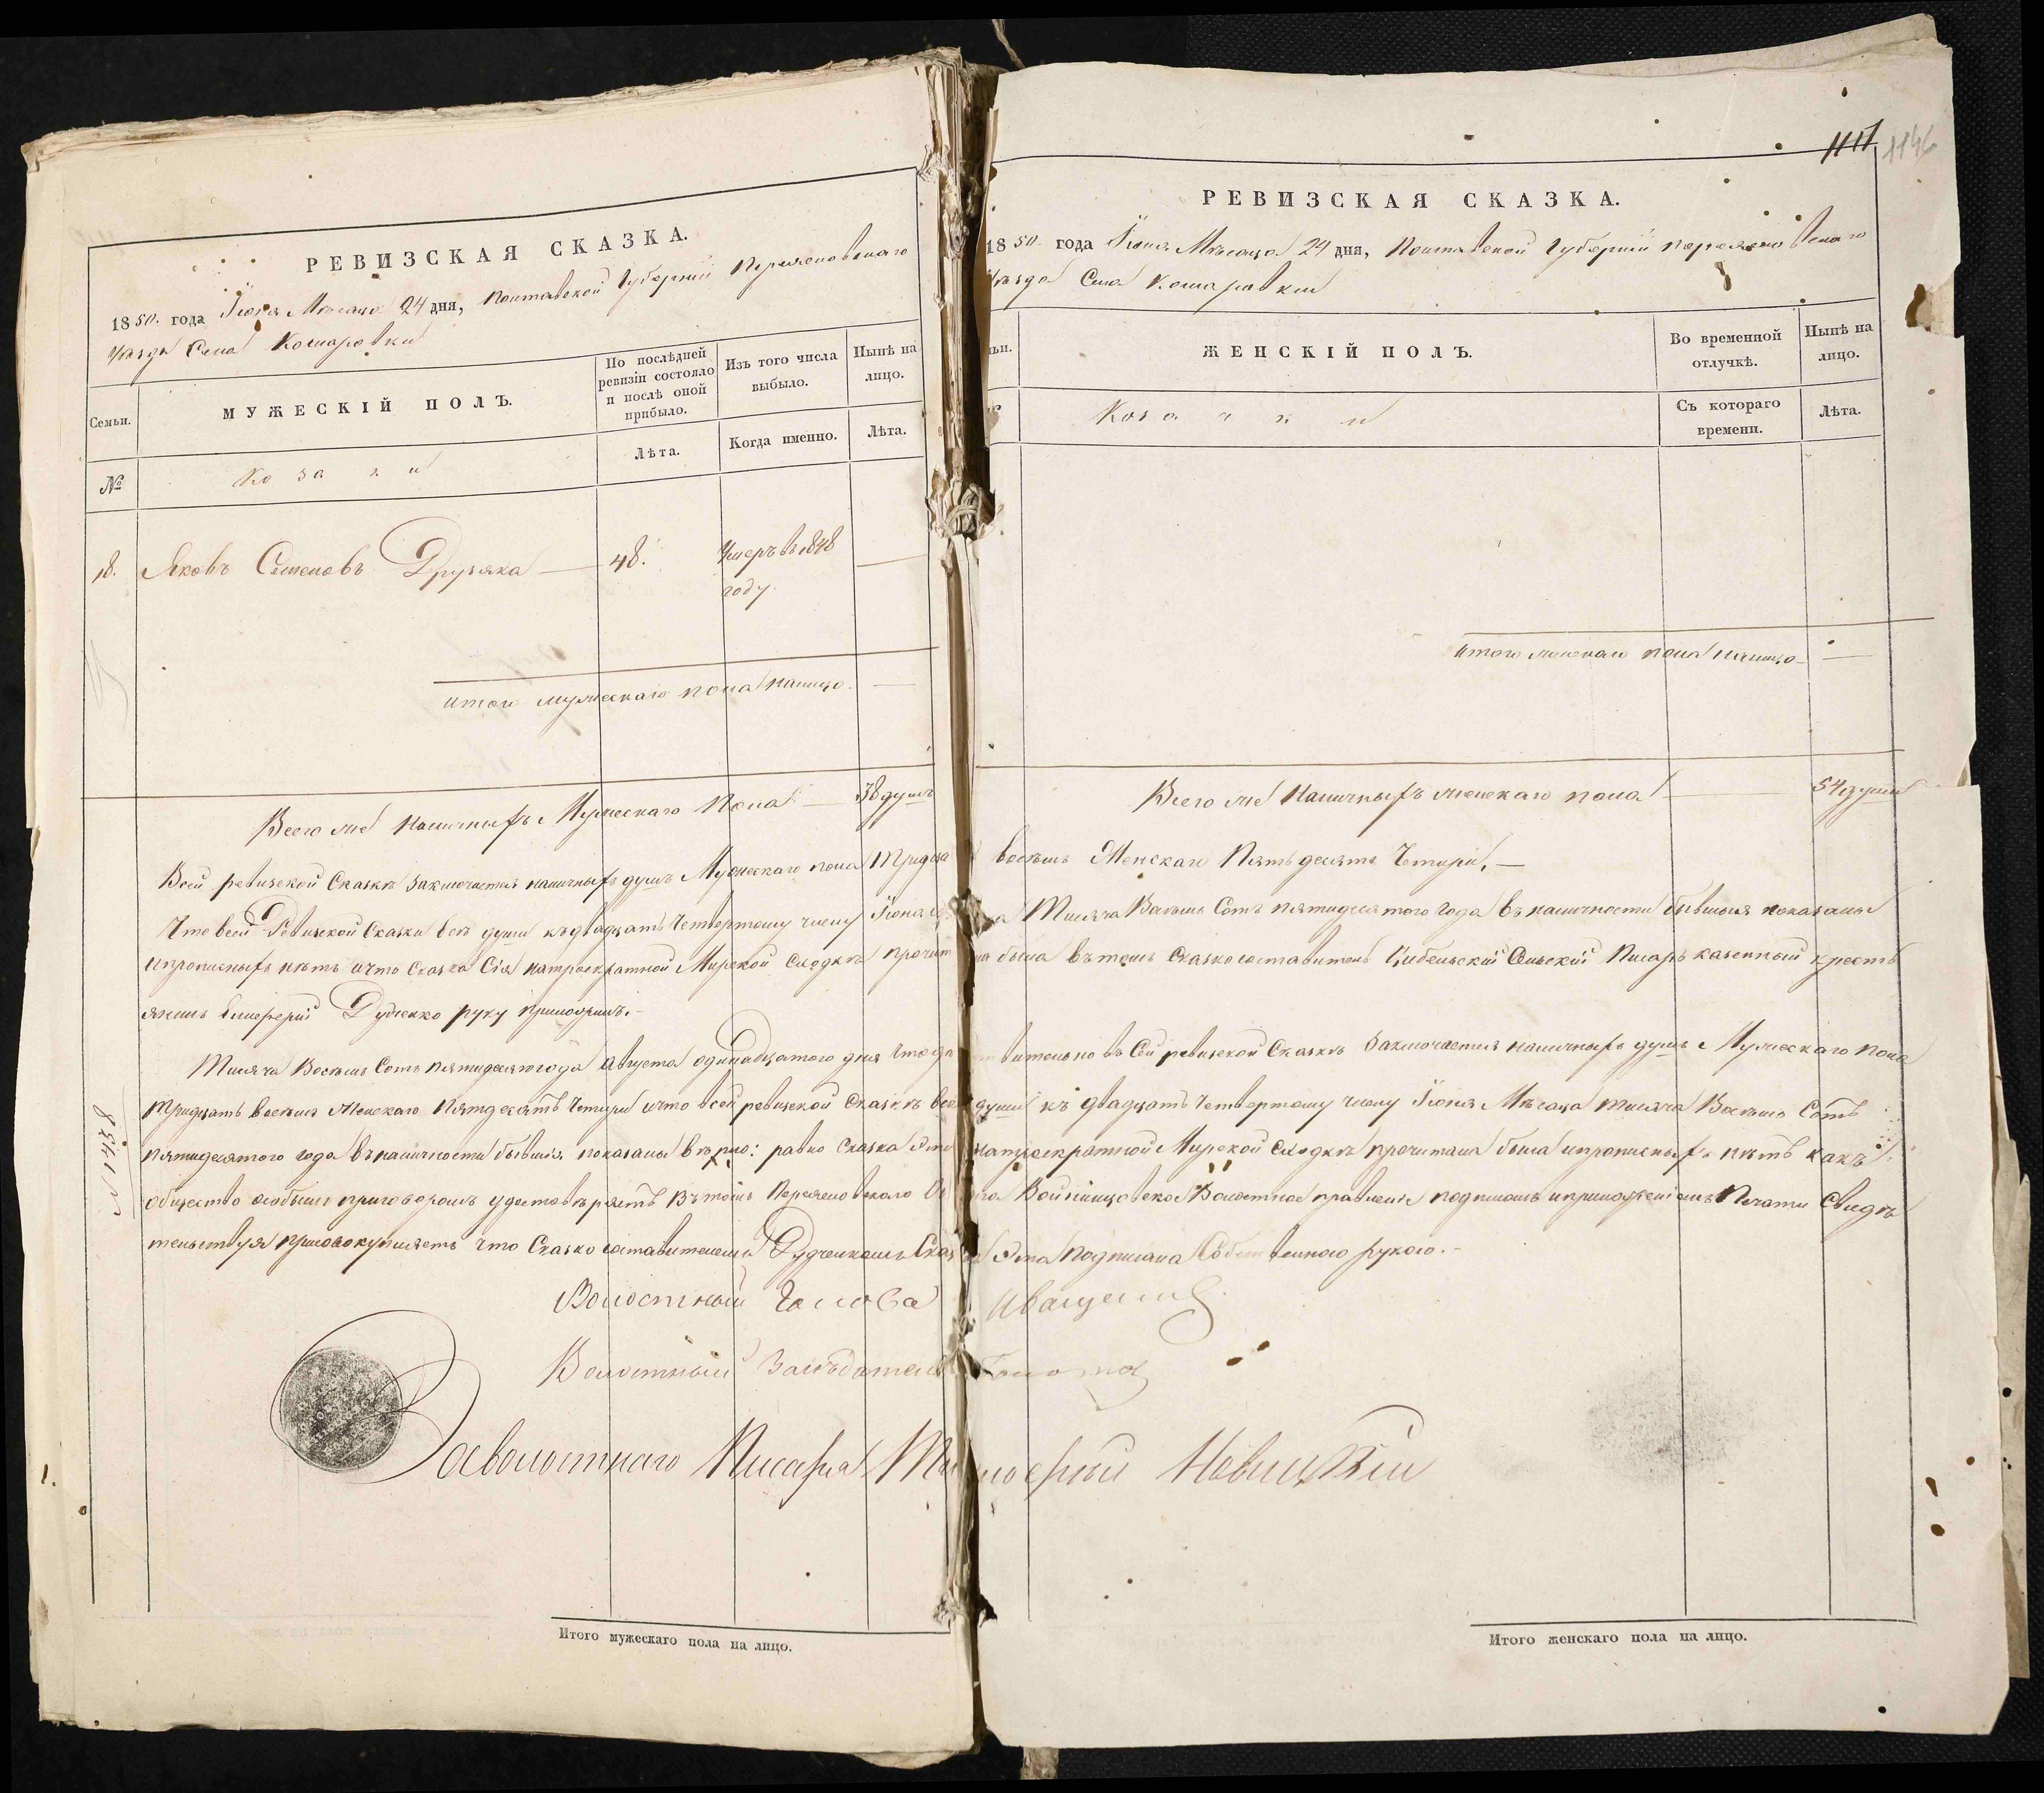 РЕВИЗСКАЯ СКАЗКА.
1850. года Іюня Мѣсяца 24 дня, Полтавской Губерніи Переясловскаго
Уѣзда Села Комаровки
Семьи.
МУЖЕСКІЙ ПОЛЪ.
По послѣдней ревизіи состояло и послѣ оной прибыло.
Изъ того числа выбыло.
Нынѣ на лицо.
Лѣта.
Когда именно.
Лѣта.
№
Козаки
18. Яковъ Семеновъ Друзяка — 48. Умеръ в 1848 —
году
итого мужескаго пола налицо. —
Всего же Наличныхъ Мужескаго Пола — 38 душъ
1117
1146
РЕВИЗСКАЯ СКАЗКА.
1850. года Іюня Мѣсяца 24 дня, Полтавской Губерніи Переясловскаго
Уѣзда Села Комаровки
ЖЕНСКІЙ ПОЛЪ.
Во временной отлучкѣ.
Нынѣ на лицо.
Козачки
Съ котораго времени.
Лѣта.
итого женскаго пола налицо —
Всего же Наличныхъ женскаго пола — 54 души
Всей ревизской Сказкѣ заключается наличныхъ душъ Мужескаго пола Тридца восемь Женскаго Пятьдесятъ Четыри, —
Что всей Ревизской Сказки всѣ души къ двадцать Четвертому числу Іюня Тысяча Восемь Сотъ пятидесятого Года въ наличности бывшія показаны
ипрописныхъ нѣтъ ичто Сказка Сія натроекратной Мирской Сходкѣ прочит на была въ томъ Сказкосоставитель Сельскій Писарь казенный кресть
янинъ Дудченко руку приложилъ.
Тысяча Восемь Сотъ пятидесятого года Августа одинадцатого дня Что дѣ ствительно въ Сей ревизской Сказкѣ Заключается наличныхъ душъ Мужескаго пола
тридцать восемь Женскаго Пятдесятъ Четыри ичто всей ревизской Сказкѣ всѣ души къ двадцать Четвертому числу Іюня Мѣсяца тысяча Восемь Сотъ
пятидесятого года въ наличности бывшія показаны вѣрно: равно Сказка Эта натроекратной Мирской Сходкѣ прочитана была ипрописныхъ нѣтъ какъ
общество особымъ приговоромъ удостовѣряетъ Въ томъ Переясловскаго Войтовское Волостное правленіе подписомъ иприложеніемъ Печати Свидѣ
тельствуя присовокупляетъ что Сказко составителемъ Дудченкомъ Сказка Эта подписана Собственною рукою. -
№ 1438
Волостный Голова Иващенко
Волостный Засѣдатель
За волостнаго Писаря Новицкій
Итого мужескаго пола на лицо.
Итого женскаго пола на лицо.